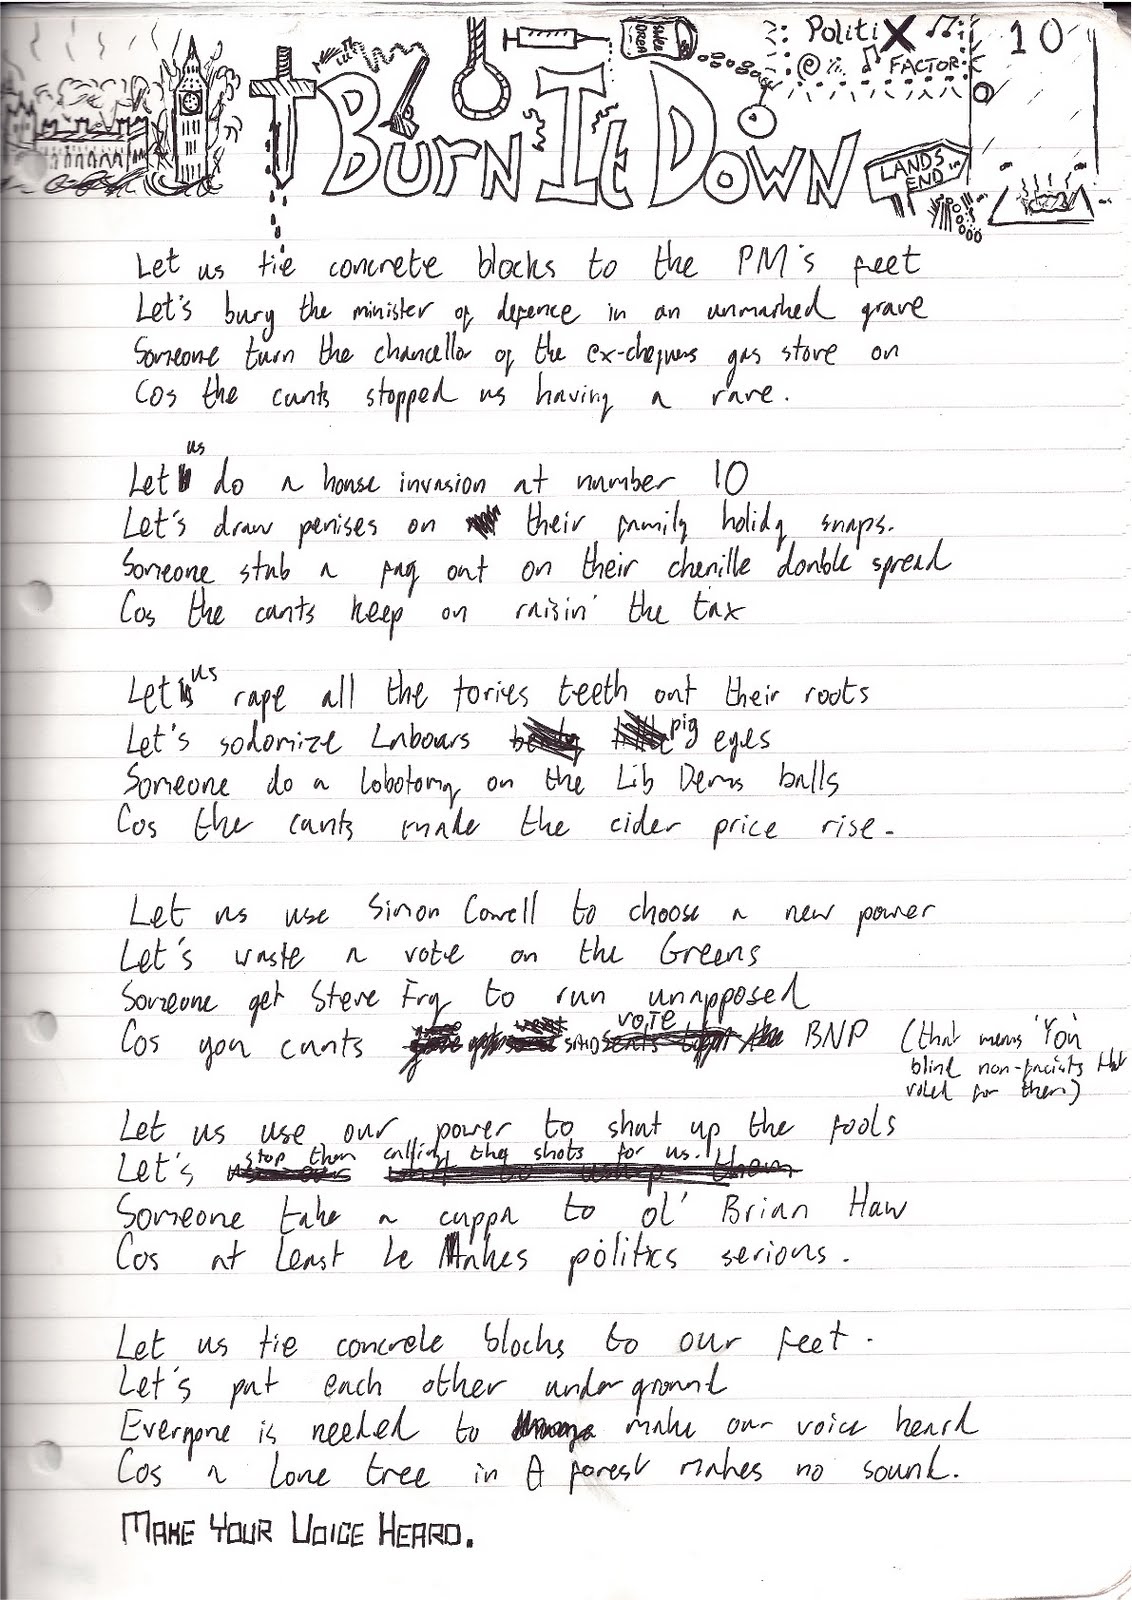 PolitiX
FACTOR
10
SLEEP
BURN It DOWN
LANDS
END
Let us tie concrete blocks to the PM's feet
Let's bury the minister of defence in an unmarked grave
Someone turn the chancellor of the ex-chequers gas stove on
Cos the cunts stopped us having a rave.
Let us do a house invasion at number 10
Let's draw penises on their family holidy snaps.
Someone stub a fag out on their chenille double spread
Cos the cunts keep on raisin' the tax
Let us rape all the tories teeth out their roots
Let's sodomize Labours pig eyes
Someone do a lobotomy on the Lib Dems balls
Cos the cunts made the cider price rise.
Let us use Simon Cowell to choose a new power
Let's waste a vote on the Greens
Someone get Steve Fry to run unapposed
Cos you cunts vote BNP (that means 'You'
blind non-facists that
voted for them)
Let us use our power to shut up the fools
Let's stop them calling the shots for us.
Someone take a cuppa to ol' Brian Haw
Cos at least he makes politics serious.
Let us tie concrete blocks to our feet.
Let's put each other underground
Everyone is needed to make our voice heard
Cos a lone tree in A forest makes no sound.
MAKE YOUR VOICE HEARD.